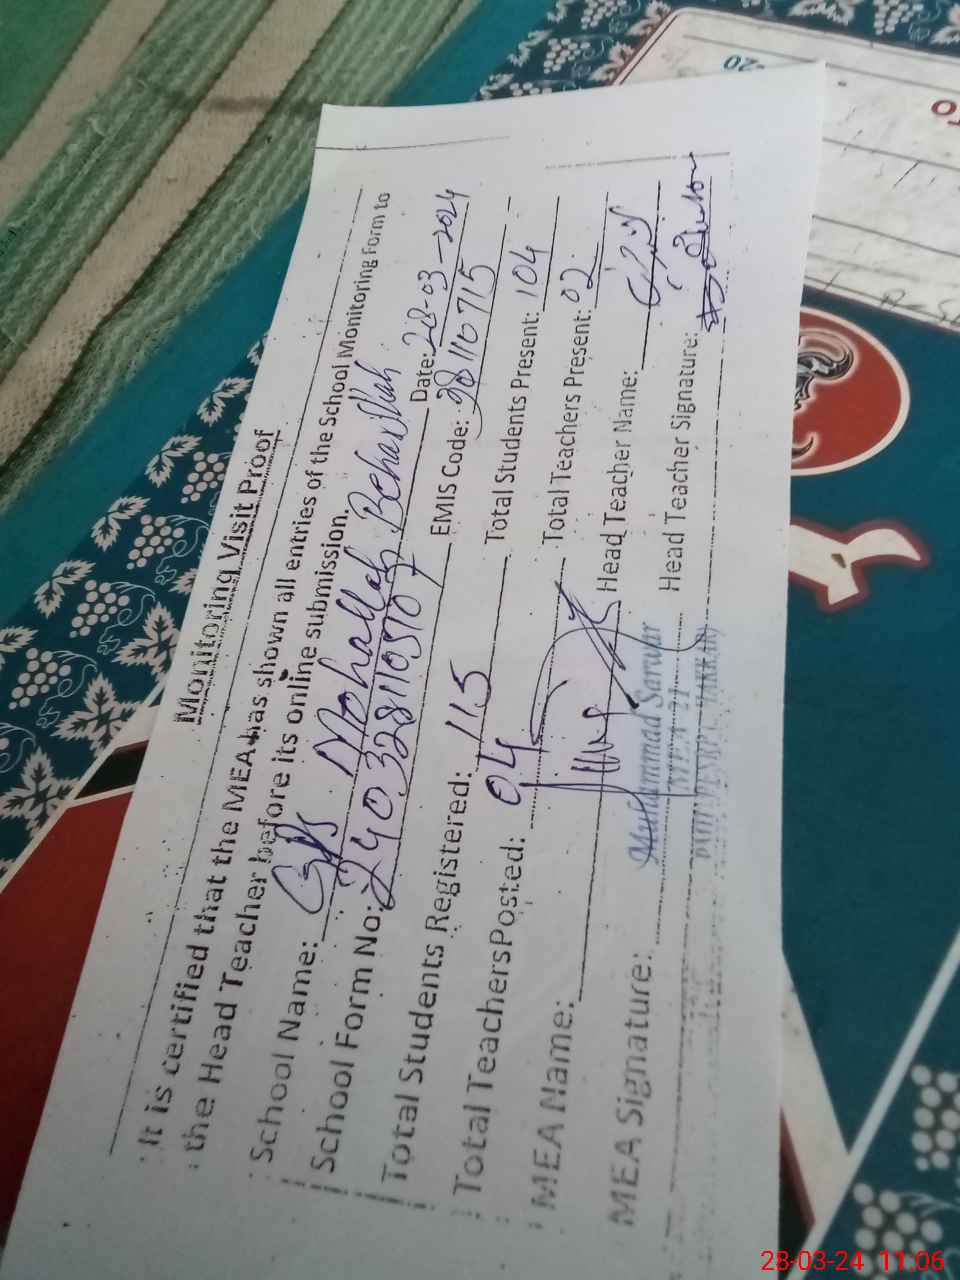 Monitoring Visit Proof
It is certified that the MEA has shown all entries of the School Monitoring Form to
the Head Teacher before its online submission.
School Name: GPS Mohallah Behar Shah Date: 28-03-2024
School Form No: EMIS Code: 98110715
Total Students Registered: 115 Total Students Present: 104
Total Teachers Posted: 04 Total Teachers Present: 02
MEA Name: Head Teacher Name:
MEA Signature: Head Teacher Signature:
Muhammad Sarwar
20
28-03-24 11:06